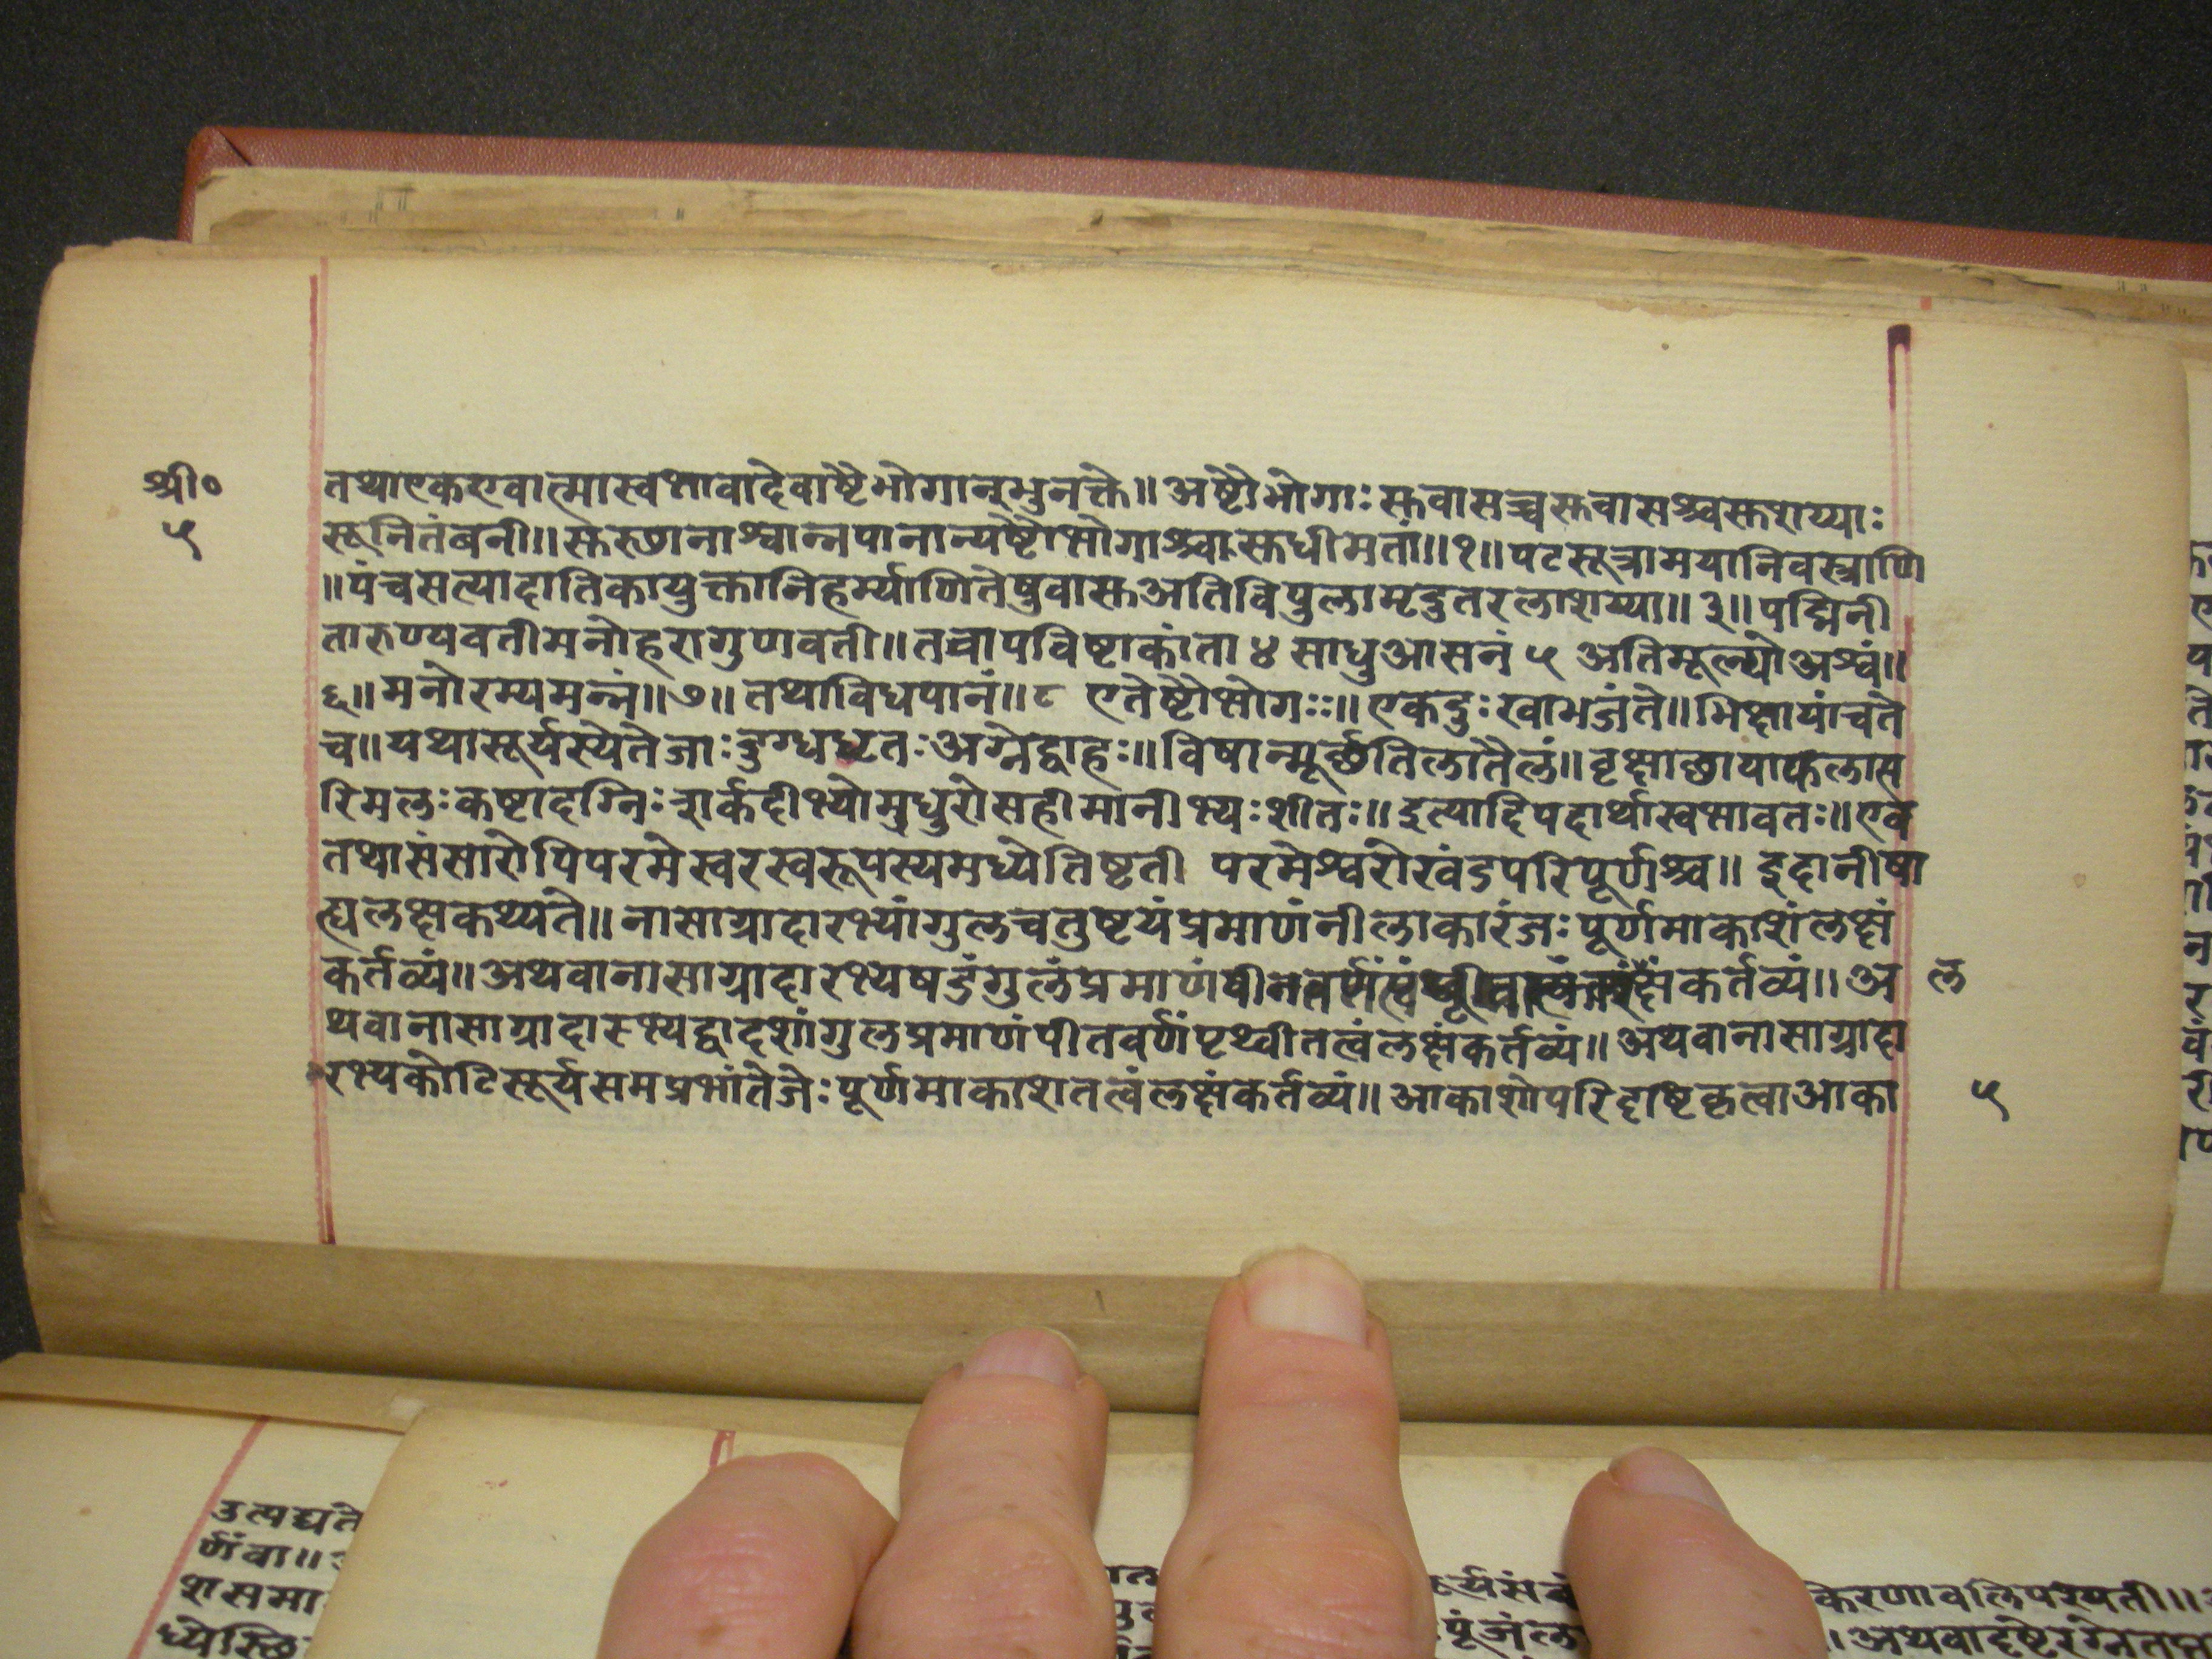 श्री०
५
तथाएकएवात्मास्वभावादेवाष्टैभोगान्भुनक्ते॥ अष्टौभोगाः सुवासच्चसुवासश्च्वसुशय्याः
सूनितंबनी॥ सुस्छानाश्चान्नपानान्यष्टौभोगाश्चासुधीमतां॥१॥ पटसूत्रामयानिवस्त्राणि
॥पंचसत्यादातिकायुक्तानिहर्म्याणितेषुवासुअतिविपुलामृदुतरलाशय्या॥३॥ पद्मिनी
तारुण्यवतीमनोहरागुणवती॥ तत्रापविष्टाकांता ४ साधुआसनं ५ अतिमूल्यो अश्वं॥
६॥ मनोरम्यमन्नं॥७॥ तथाविधपानं॥८ एतेष्टौभोगः॥ एकदुःखाभजंते॥ भिक्षायांचंते
च॥ यथासूर्यस्येतेजाःदुग्धघृतःअग्नेद्दाहः॥ विषान्मूर्छतिलातैलं॥ वृक्षाछायाफलास
रिमलःकष्टादग्निःशर्कदीभ्योमुधुरोसहीमानीभ्यःशीतः॥ इत्यादिपदार्थास्वभावतः॥ एव
तथासंसारोपिपरमेस्वरस्वरूपस्यमध्येतिष्टती परमेश्वरोखंडपरिपूर्णश्च॥ इदानीषा
ह्यलक्षकथ्यते॥ नासाग्रादारभ्यांगुलचतुष्टयंप्रमाणंनीलाकारंजःपूर्णमाकाशंलक्षं
कर्तव्यं॥ अथवानासाग्रादारभ्यषडंगुलंप्रमाणं क्षंकर्तव्यं॥ अ ल
थवानासाग्रादारभ्यद्वादशांगुलप्रमाणंपीतवर्णंपृथ्वीतत्वंलक्षंकर्तव्यं॥ अथवानासाग्रादा
रभ्यकोटिसूर्यसमप्रभांतेजेःपूर्णमाकाशतत्वंलक्षंकर्तव्यं॥ आकाशोपरिदृष्टिकृत्वाआका
५
उत्पद्यते
र्णवा॥
शसमा
किरणावलिपश्यती॥
पूंजंल
॥ अथवादृष्टे